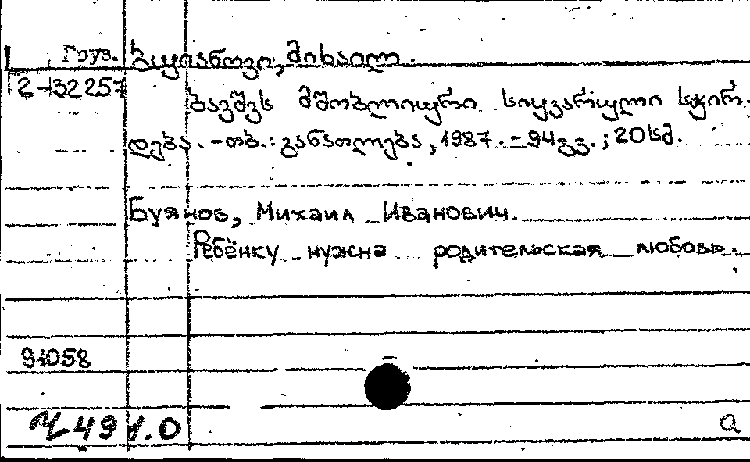 Груз. ბუიანოვი, მიხაილ.
2-132257
ბავშვს მშობლიური სიყვარული სჭირ-
დება. - თბ.: განათლება, 1987. - 94გვ.; 20სმ.
Буянов, Михаил Иванович.
Ребёнку нужна родительская любовь.
91058
Ч491.0
a